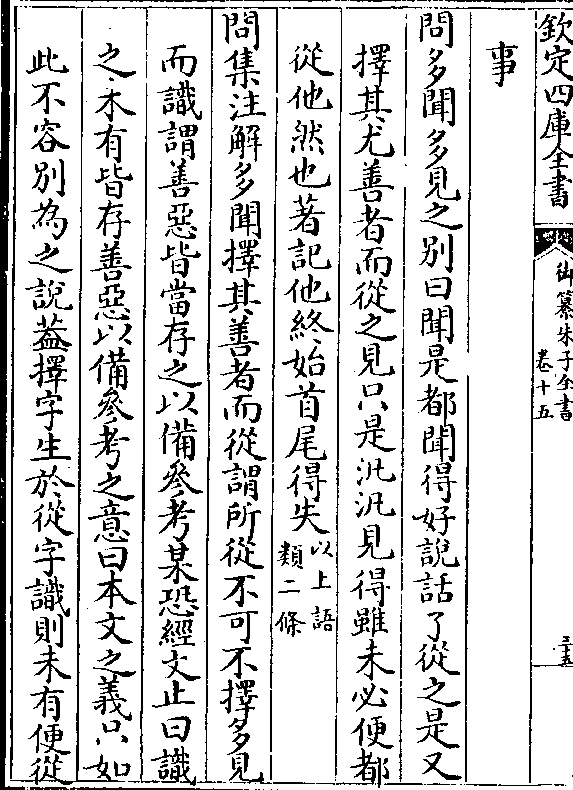 欽定四庫全書
御纂朱子全書
卷十五
三五
事
問多聞多見之别曰聞是都聞得好說話了從之是又
擇其尤善者而從之見只是汎汎見得雖未必便都
從他然也著記他終始首尾得失以上語類二條
問集注解多聞擇其善者而從謂所從不可不擇多見
而識謂善惡皆當存之以備參考某恐經文止曰識
之未有皆存善惡以備參考之意曰本文之義只如
此不容别為之說葢擇字生於從字識則未有便從